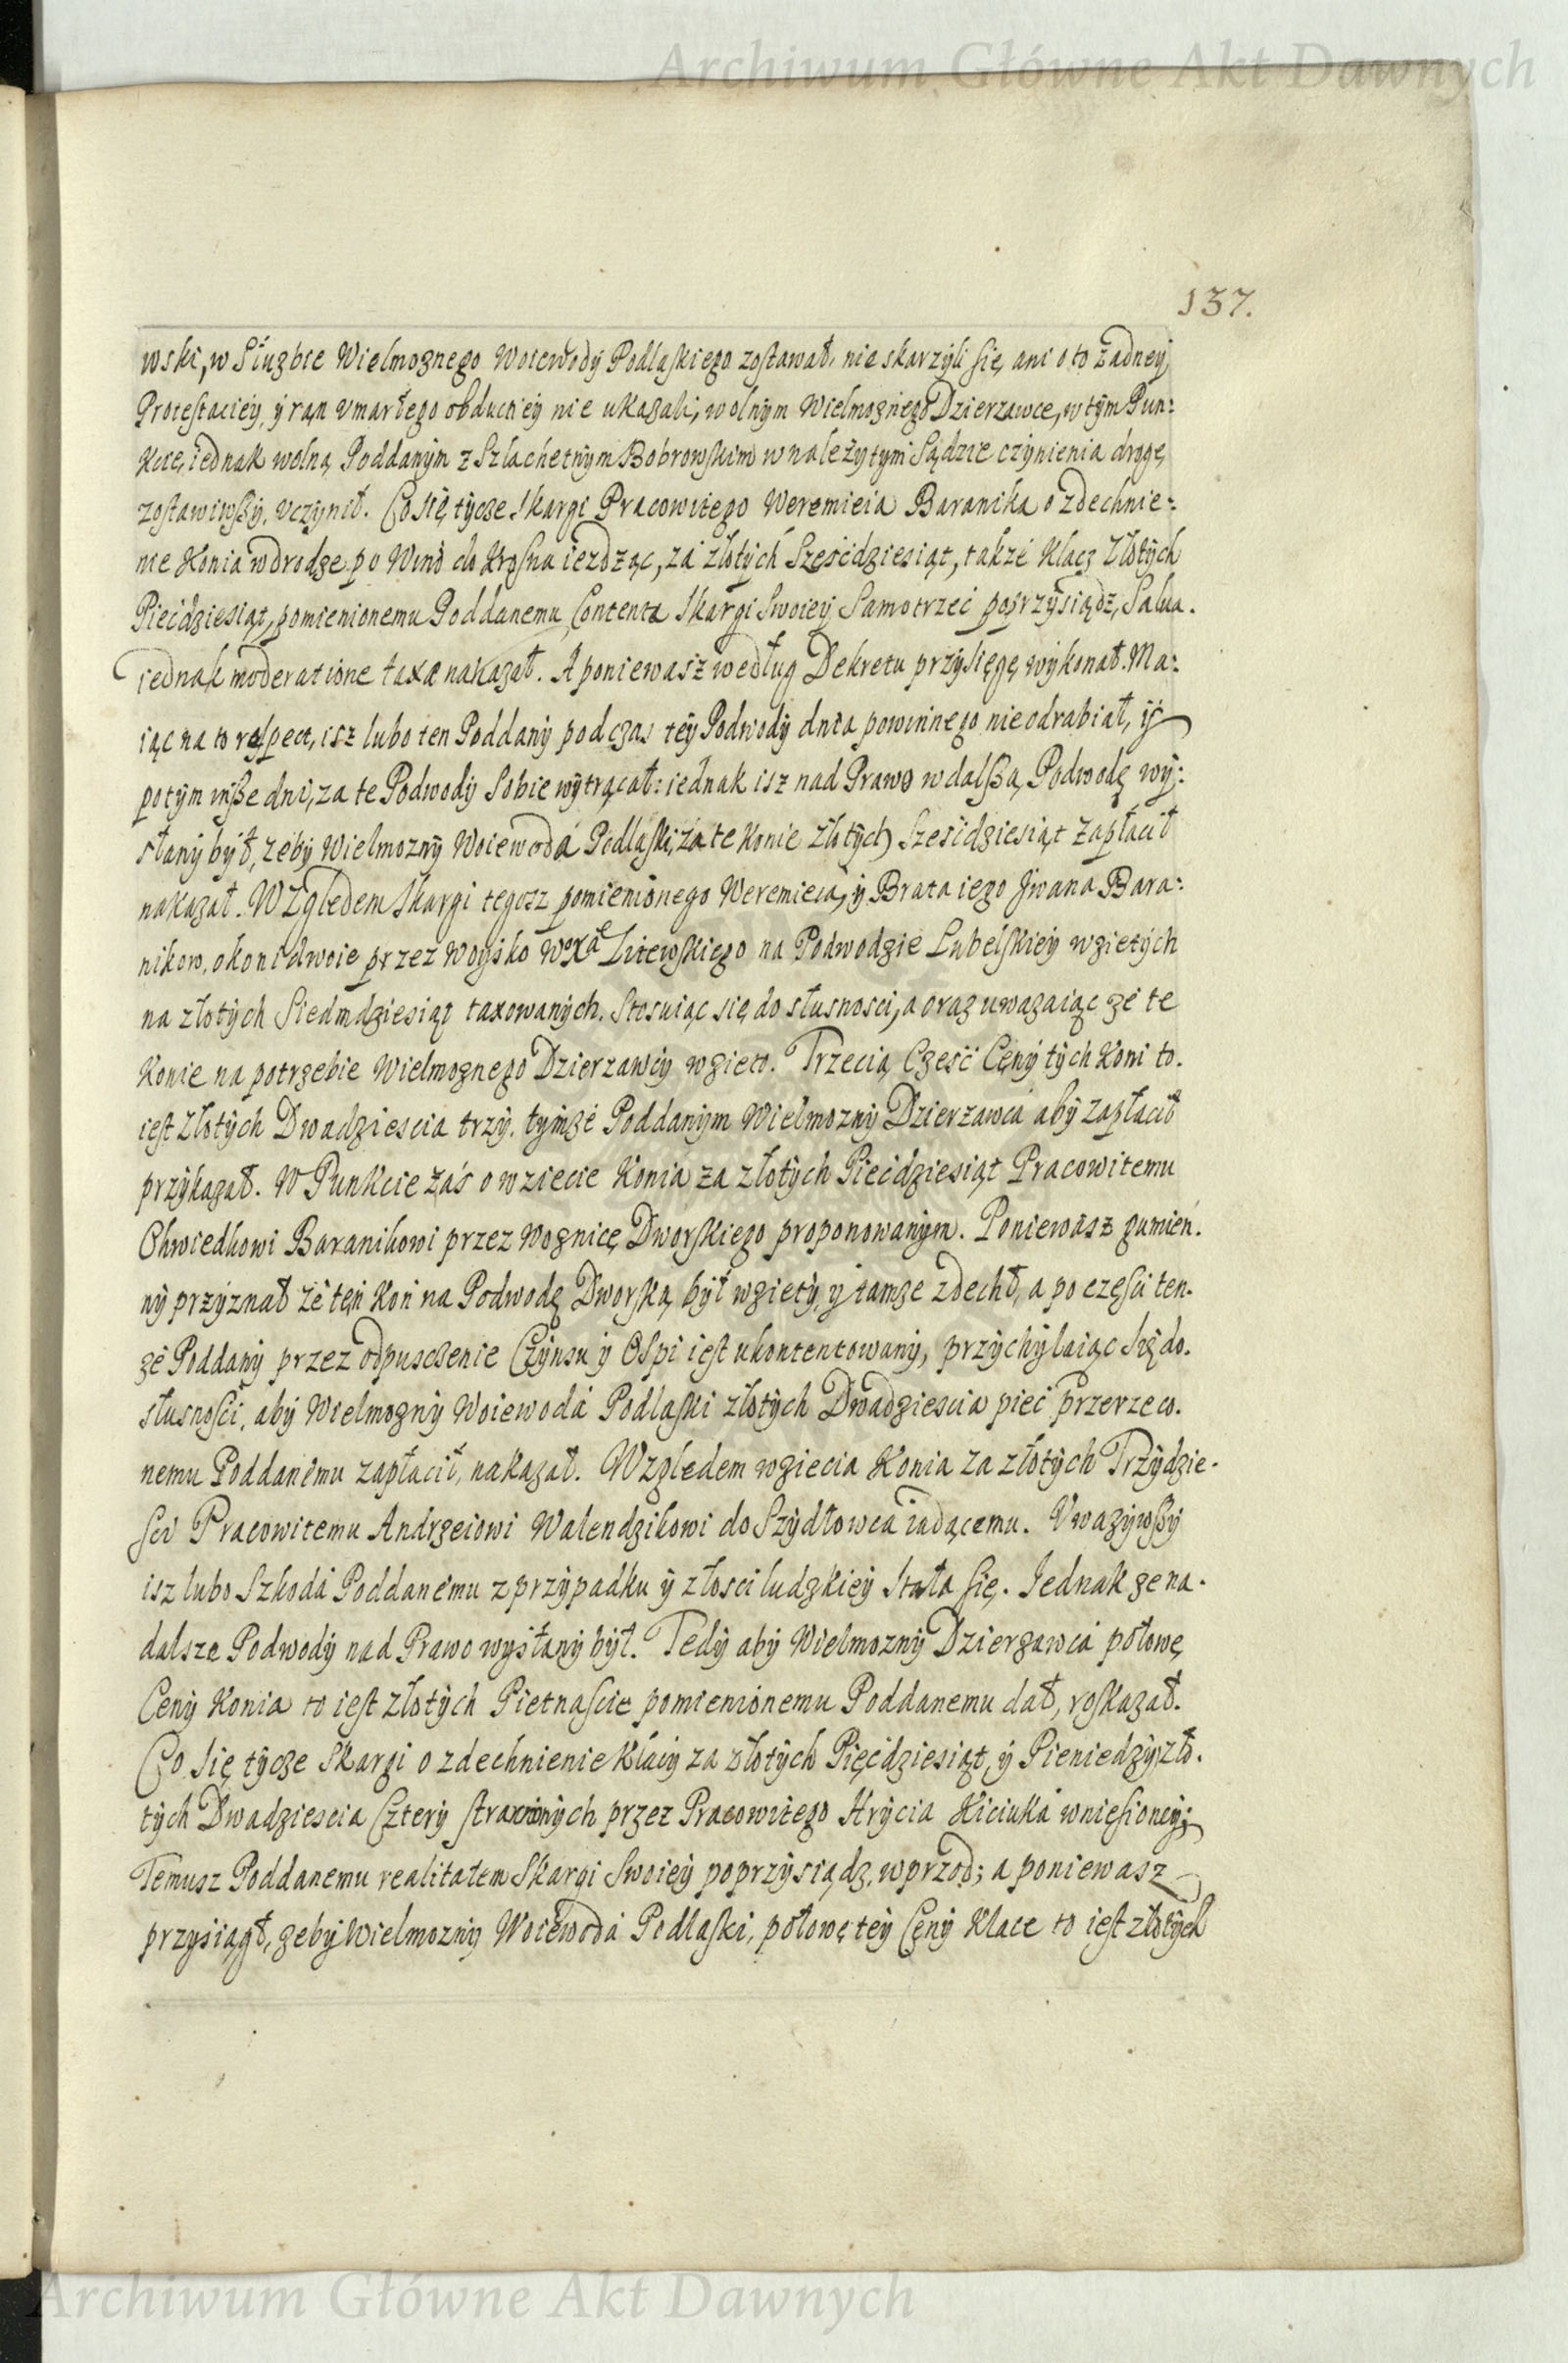 Archiwum Główne Akt Dawnych
137.
wski, w Służbie Wielmoznego Woiewody Podlaskiego zostawał, nie skarzyli się, ani o to żadney
Protestaciey, y ran vmarłego obducciey nie ukazali, wolnym Wielmoznego Dzierzawce, w tym Pun:
kcie, iednak wolną Poddanym z Szlachetnym Bobrowskim w należytym Sądzie czynienia drogę
zostawiwszy, vczynił. Co się tycze Skargi Pracowitego Weremieia Baranika o zdechnie:
nie Konia w drodze po Wino do Krosna iezdząc, za złotych Sześćdziesiąt, także Klacz Złotych
Piećdziesiąt, pomienionemu Poddanemu Contenta Skargi Swoiey Samotrzeć poprzysiądz, Salua.
iednak moderatione taxæ nakazał. A poniewasz według Dekretu przysięgę wykonał. Ma:
iąc na to respect, isz lubo ten Poddany podczas tey Podwody dnia powinnego nie odrabiał, y
potym insze dni, za te Podwody Sobie wytrącał: iednak isz nad Prawo w dalszą Podwodę wy:
słany był, zeby Wielmozny Woiewoda Podlaski, za te Konie złotych Sześćdziesiąt zapłacił
nakazał. Względem Skargi tegosz pomienionego Weremieia, y Brata iego Jwana Bara:
nikow, o koni dwoie przez woysko W. Xa Litewskiego na Podwodzie Lubelskiey wzietych
na złotych Siedmdziesiąt taxowanych. Stosuiąc się do słusnosci, a oraz uwazaiąc że te
Konie na potrzebie Wielmoznego Dzierzawcy wzieto. Trzecią Część Ceny tych Koni to.
iest Złotych Dwadziescia trzy, tymże Poddanym Wielmozny Dzierzawca aby zapłacił
przykazał. W Punkcie zaś o wziecie Konia za złotych Piećdziesiąt Pracowitemu
Chwiedkowi Baranikowi przez woznicę Dworskiego proponowanym. Poniewasz gumien.
ny przyznał że ten Koń na Podwodę Dworską był wziety, y tamże zdechł, a po części ten.
że Poddany przez odpusczenie Czynsu y Ospi iest ukontentowany, przychylaiąc się do.
słusności, aby Wielmozny Woiewoda Podlaski złotych Dwadziescia pieć przerzeco.
nemu Poddanemu zapłacił, nakazał. Względem wziecia Konia za złotych Trzydzie.
sci Pracowitemu Andrzeiowi Walendzikowi do Szydłowca iadącemu. Vwazywszy
isz lubo Szkoda Poddanemu z przypadku y złosci ludzkiey Stała się. Iednak że na.
dalsze Podwody nad Prawo wysłany był. Tedy aby Wielmozny Dzierzawca połowę
Ceny Konia to iest złotych Pietnascie pomienionemu Poddanemu dał, roskazał.
Co się tycze Skargi o zdechnienie Klaczy za złotych Pięćdziesiąt, y Pieniedzy zło.
tych Dwadziescia Cztery straconych przez Pracowitego Hrycia Kiciuka wniesioney;
Temusz Poddanemu realitatem Skargi Swoiey poprzysiądz, wprzod; a poniewasz
przysiągł, zeby Wielmozny Woiewoda Podlaski, połowę tey Ceny Klace to iest złotych
Archiwum Główne Akt Dawnych